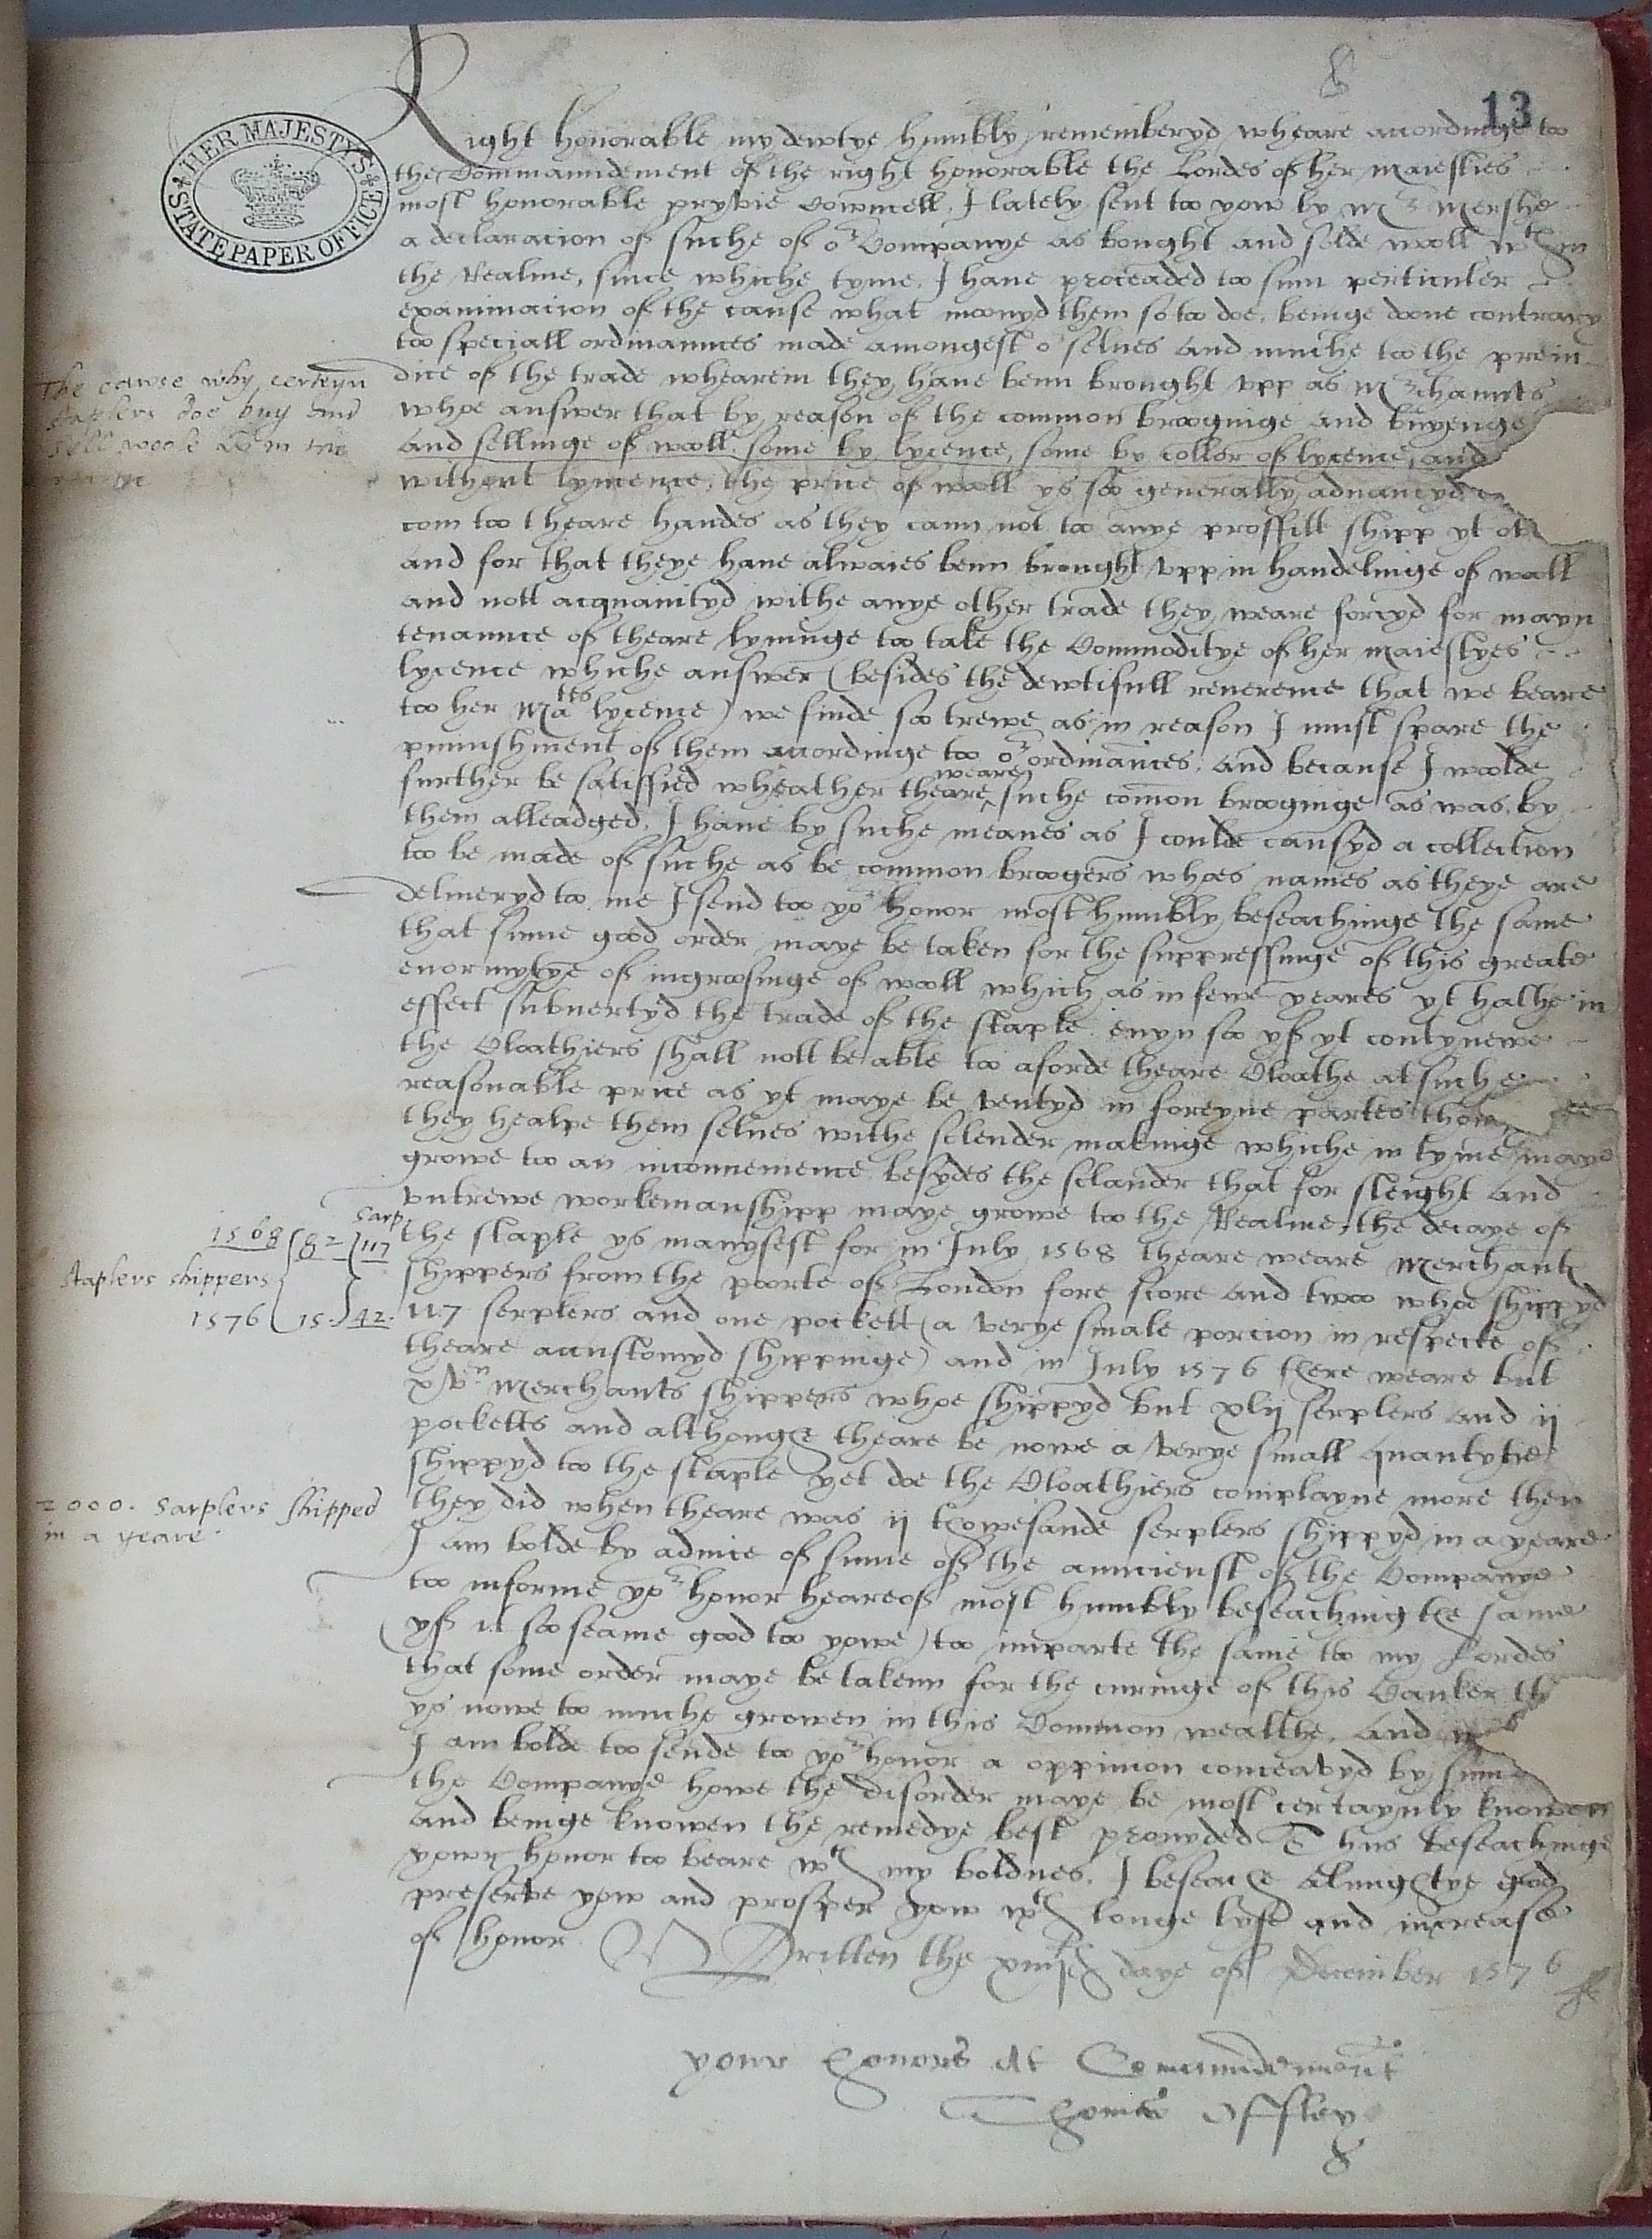 13
HER MAJESTY'S
STATE PAPER OFFICE
Right honorable my dewtye humbly rememberyd, wheare accordinge too
the Commaundement of the right honorable the Lordes of her maiesties
most honorable pryvie cownsell, I lately sent too yow by Mr Mershe
a declaracion of suche of or Companye as bought and selde woll wth in
the Realme, since whiche tyme, I haue proceaded too sum perticuler
examinacion of the cause what moovyd them so too doe, beinge doone contrary
too speciall ordinaunces made amongest or selues and muche too the preiu
dice of the trade whearein they haue benn brought vpp as Mrchaunts
whoe answer that by reason of the common brooginge and buyenge
and sellinge of wooll, some by lycence, some by collor of lycence, and
without lycence, the price of wooll ys soo generally aduancyd
com too theare handes as they cann not too anye proffitt shipp yt
and for that theye haue alwaies benn brought vpp in handelinge of wooll
and nott acquaintyd withe anye other trade they weare forcyd for mayn
tenaunce of theare lyvinge too take the Commoditye of her maiestyes
lycence whiche answer (besides the dewtifull reuerence that we beare
too her Mates lycence) we finde soo trewe as in reason I must spare the
punnishment of them accordinge too or ordinaunces, And because I woolde
further be satisfied wheather theare weare suche common brooginge as was by
them alleadged, I haue by suche meanes as I coulde causyd a collection
too be made of suche as be common broogers whoes names as theye are
deliueryd too me I send too yor honor most humbly beseachinge the same
that sume good order maye be taken for the suppressinge of this greate
enormytye of ingroosinge of wooll which as in fewe yeares yt hathe in
effect subuertyd the trade of the staple, euyn soo yf yt contynewe
the Cloathiers shall nott be able too aforde theare Cloathe at suche
reasonable price as yt maye be ventyd in foreyne partes
they healpe them selues withe sclender makinge whiche in tyme maye
growe too an inconuenience besydes the sclander that for sleight and
vntrewe workemanshipp maye growe too the Realme, the decaye of
the staple ys manyfest for in July 1568 theare weare Merchant
shippers from the poorte of London fore score and twoo whoe shippyd
117 serplers and one pockett (a verye smale porcion in respecte of
theare accustomyd shippinge) and in July 1576 there weare but
xven Merchants shippers whoe shippyd but xlij serplers and ij
pocketts and althoughe theare be nowe a verye small quantytie
shippyd too the staple yet doe the Cloathiers complayne more then
they did when theare was ij thowesande serplers shippyd in a yeare
I am bolde by aduice of sume of the auncienst of the Companye
too informe yor honor heareof most humbly beseaching the same
(yf it soo seame good too yowe) too imparte the same too my Lordes
that some order maye be takenn for the curinge of this Canker
ys nowe too muche growen in this Common wealthe. And
I am bolde too sende too yor honor a oppinion conceavyd by sume
the Companye howe the disorder maye be most certaynly knowen
and beinge knowen the remedye best prouyded Thus beseachinge
yowr honor too beare wth my boldnes, I beseache Almightye god
preserve yow and prosper yow wth longe lyfe and increase
of honor. Written the xiiijth daye of December 1576
your honors at Commaundement
Thomas Offley
The cawse why certeyn
staplers doe buy and
sell woole wthin the
realme
1568 82 sarp. 117
staplers shippers
1576 15. 42.
2000. sarplers shipped
in a yeare.